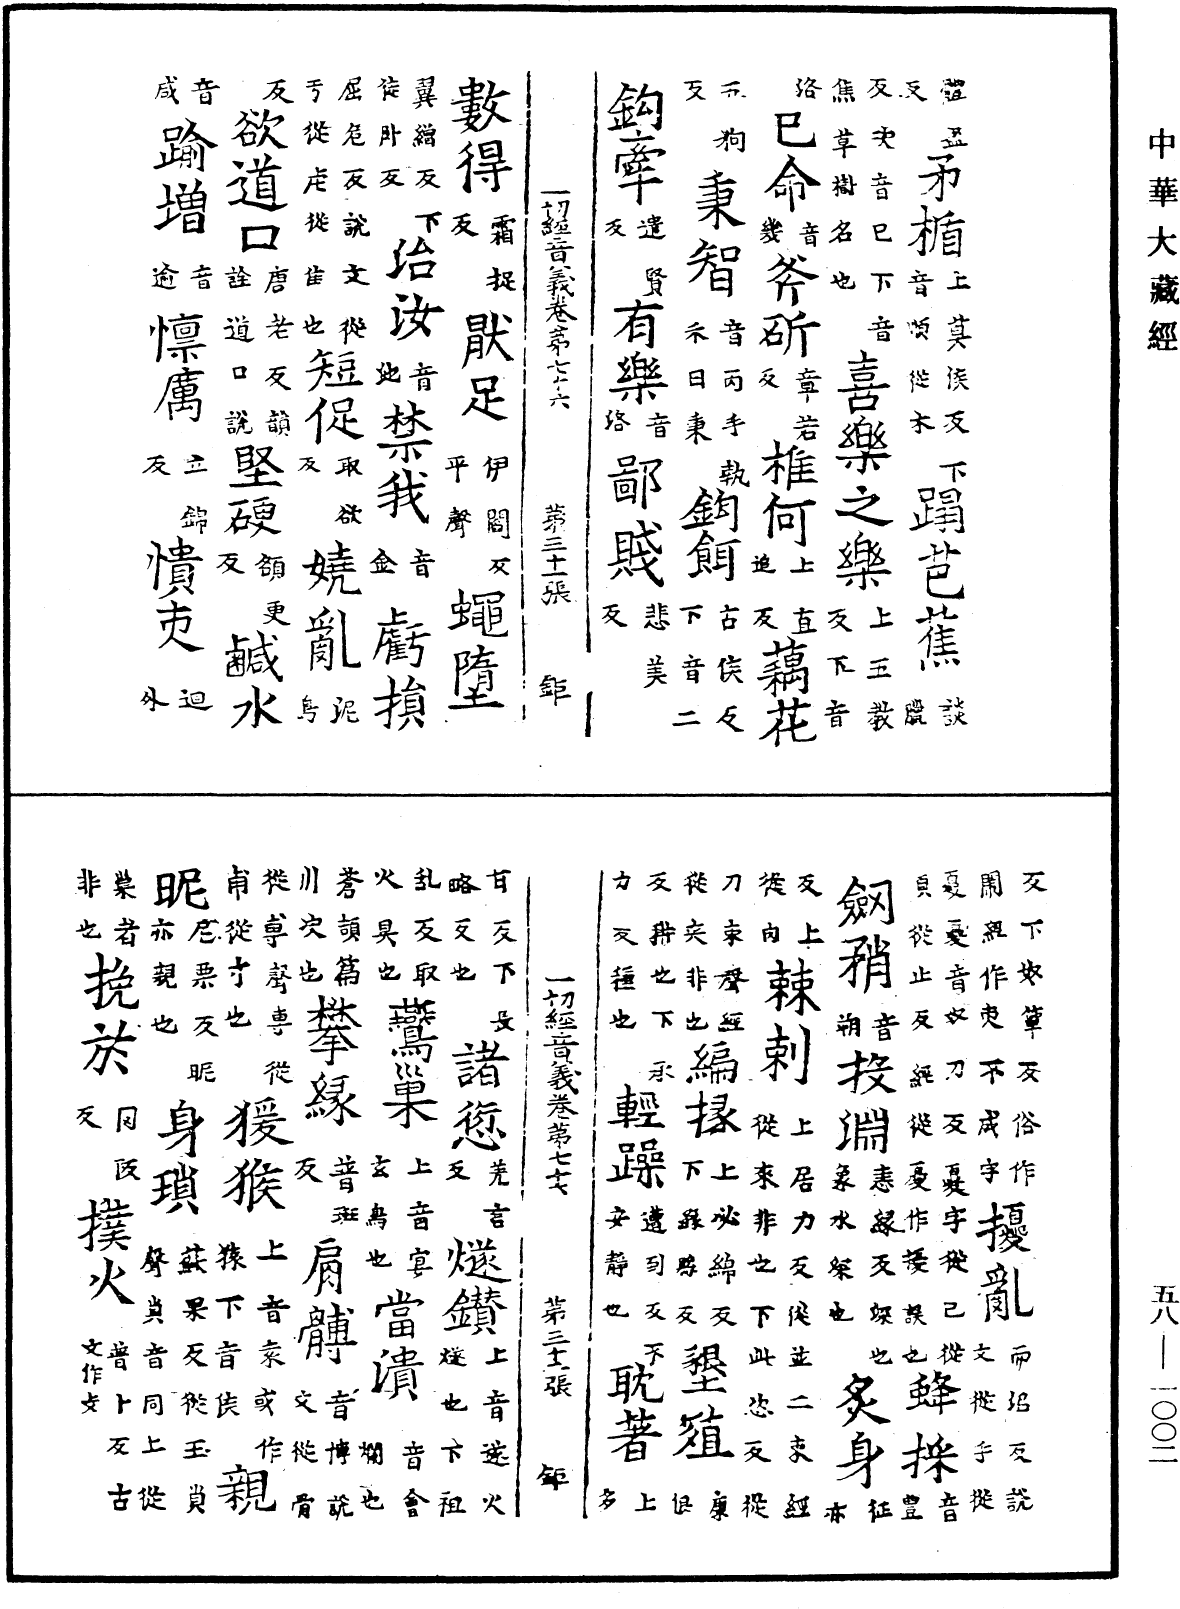 中華大藏經
矛楯 上莫侯反下音順從木 蹋芭蕉 談臘
反次音巴下音焦草樹名也 喜樂之樂 上五教反下音
洛 巳命 音幾 斧斫 章若反 椎何 上直追反 藕花
狗反 秉智 音丙手執禾曰秉 鈎餌 古侯反下音二
鈎牽 遣賢反 有樂 音洛 鄙賤 悲美反
一切經音義卷第七十六 第三十一張 鉅
數得 霜捉反 猒足 伊閻反平聲 蠅墮
翼繒反下徒卧反 治汝 音池 禁我 音金 虧損
屈危反說文從亏從虍從隹也 短促 取欲反 嬈亂 泥鳥
反 欲道口 唐老反韻詮道口說 堅硬 額更反 鹹水
音咸 踰增 音逾 懍厲 立錦反 憒吏 迴外
反下奴簟反俗作閙經作吏不成字 擾亂 而沼反說文從手從
憂憂音奴刀反憂字從巳從頁從止反經從憂作擾誤也 蜂採 音豐
劔矟 音朔 投淵 恚緣反深也象水深也 炙身 征亦
反上從肉 棘刺 上居力反從並二朿經從來非也下此恣反從
刀朿聲經從夾非也 編椽 上必綿反下緣反 墾殖 康佷
反耕也下承力反種也 輕躁 下遭到反不安靜也 耽著 上多
一切經音義卷第七十六 第三十二張 鉅
甘反下長略反也 諸愆 羌言反 燧鑽 上音遂火燧也下祖
乱反取火具也 鷰巢 上音宴玄鳥也 當潰 音會爛也
蒼頡篇川穴也 攀緣 普班反 肩髆 音博說文從骨
從尃聲尃從甫從寸也 猨猴 上音袁或作猿下音侯 親
昵 尼栗反昵亦親也 身瑣 蘇果反從玉𧴪聲𧴪音同上從
巢者非也 挽於 反 撲火 普卜反古文作攴
五八—一〇〇二